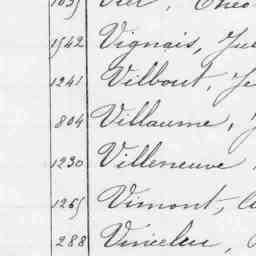 1035 Vier, Théo
1542 Vignais, Ju
1241 Vilbout, Je
804 Villaume, J
1230 Villeneuve
1265 Vimont, A
288 Vinceleu,